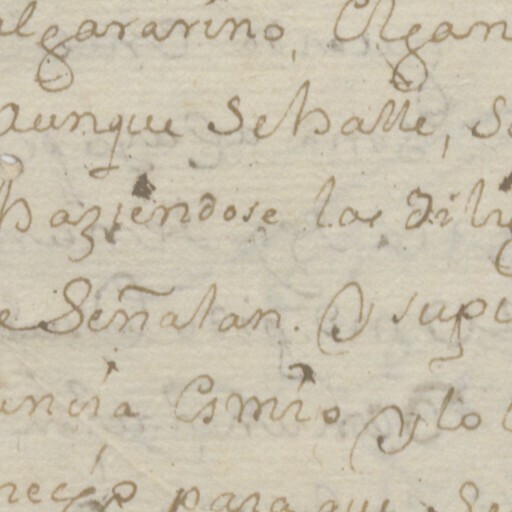 algararino, Elgan
aunque Sehalle, Se
haziendose las dili
e Señalan. Y supi
uncia Esmio, Ylo
para que Se